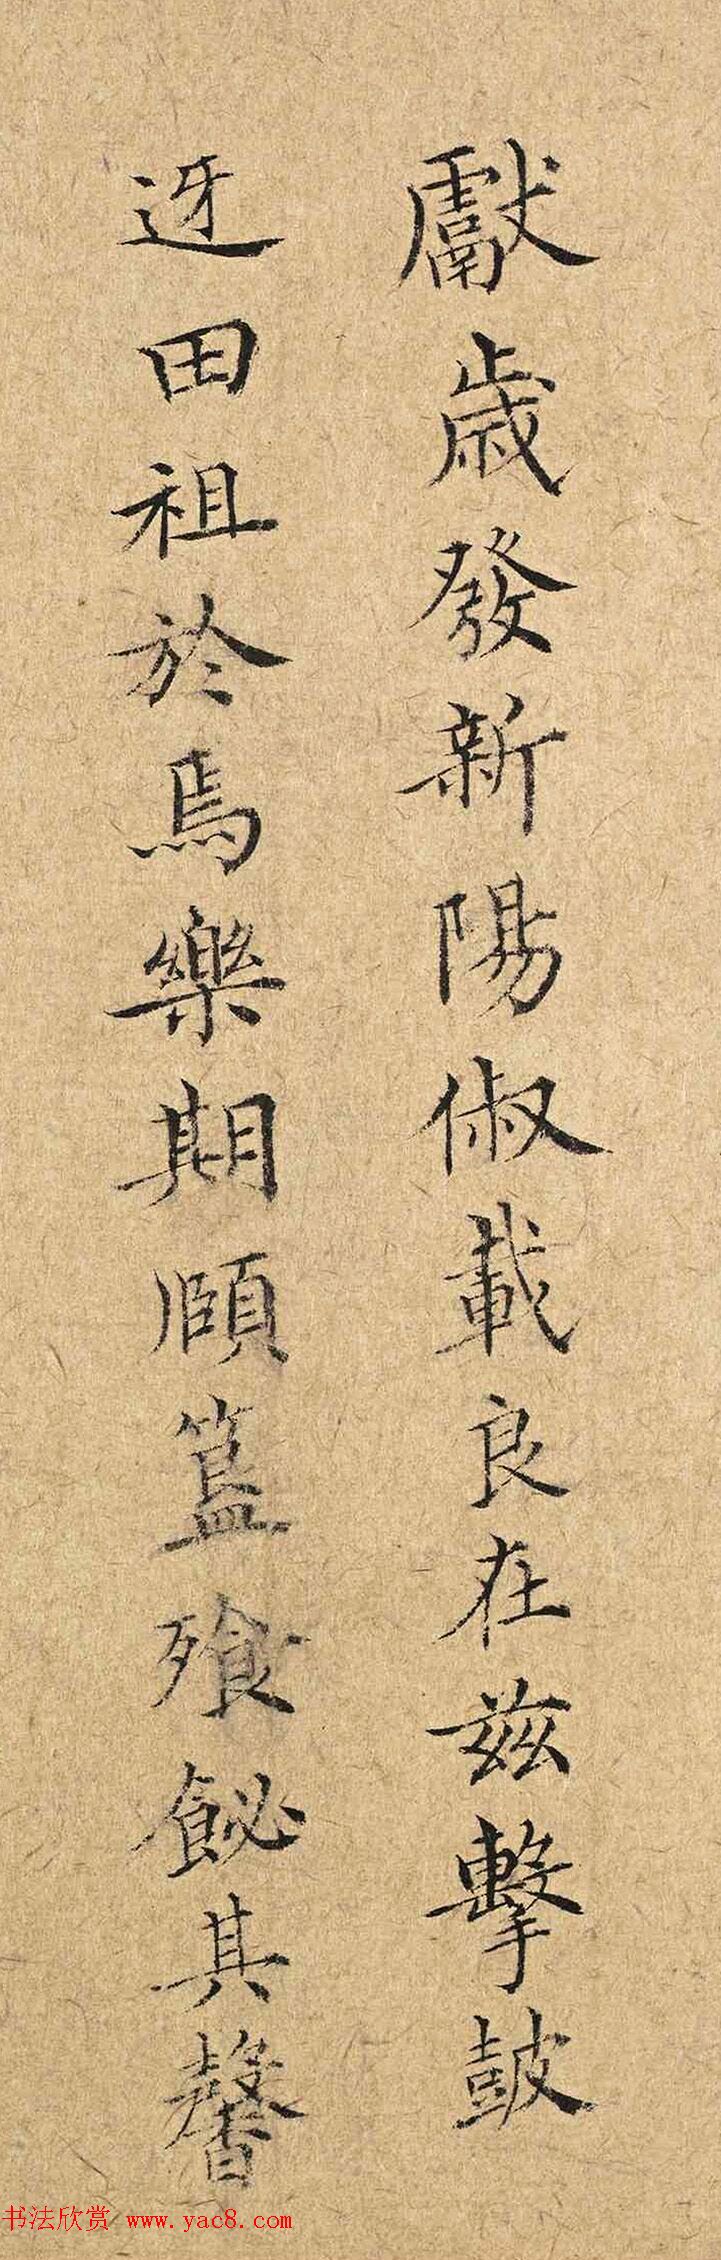 獻歲發新陽俶載良在茲擊鼓
迓田祖於焉樂期頤簋飱飶其馨
书法欣赏 www.yac8.com